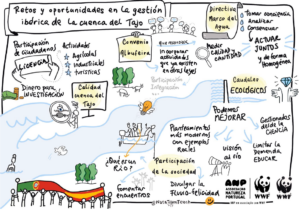 Retos y oportunidades en la gestión
ibérica de la cuenca del Tajo
Directiva
Marco del
Agua
Tomar
conciencia
Analizar
Consensuar
ACTUAR
JUNTOS
y de forma
homogénea
Participación
de ciudadanos
Actividades
Agrícolas
industriales
turísticas
Convenio
Albufeira
incorporar
actividades
que ya existen
en otros
Medir
CALIDAD
y CANTIDAD
Dinero para
INVESTIGACIÓN
Calidad
cuenca del
Tajo
Participación
Caudales
ECOLÓGICOS
Podemos
MEJORAR
Gestionados
desde la
CIENCIA
Planteamientos
más modernos
con ejemplos
reales
Limitar la
demanda,
EDUCAR
Visión
al río
¿Qué es un
Río?
Participación
de la sociedad
Fomentar
encuentros
Divulgar la
fluvio-felicidad
ANP
ASSOCIAÇÃO
NATUREZA
PORTUGAL
WWF
WWF